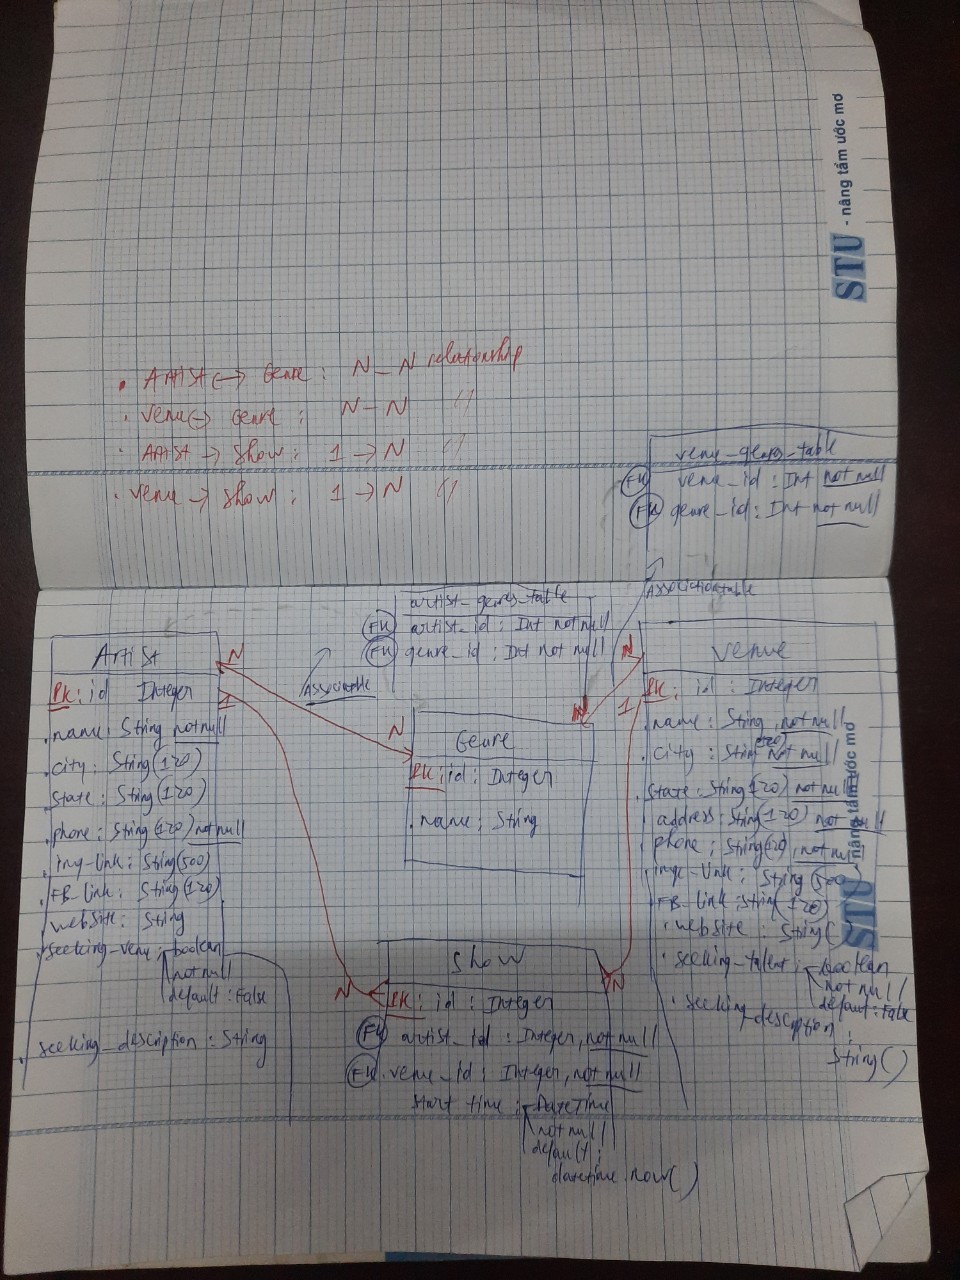 STU - nâng tầm ước mơ
• Artist <-> Genre : N - N relationship
• Venu <-> Genre : N - N "
• Artist -> Show : 1 -> N "
• Venu -> Show : 1 -> N "
venu_genres_table
FK venu_id : Int not null
FK genre_id : Int not null
Association table
artist_genres_table
FK artist_id : Int not null
FK genre_id : Int not null
Artist
PK: id Integer
• name : String not null
• city : String(120)
• state : String(120)
• phone : String(120) not null
• img-link : String(500)
• FB-link : String(120)
• website : String
• seeking-venu : boolean
not null
default : False
• seeking_description : String
N
1
N
Genre
PK: id : Integer
• name : String
N
N
1
Venue
PK: id : Integer
• name : String, not null
• city : String(120) Not null
• state : String(120) not null
address : String(120) not null
phone : String(120), not null
link : String(500
FB-link : String(120)
• website : String(
• seeking-talent : boolean
not null
default : False
• seeking_description :
String()
Show
N
N
PK: id : Integer
FK artist_id : Integer, not null
FK • venu_id : Integer, not null
start time : DateTime
not null
default :
datetime.now()
STU - nâng tầm ước mơ